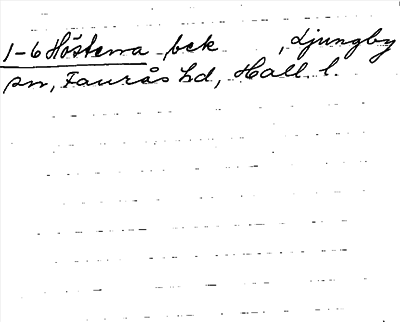 1-6 Höstena bck , Ljungby
sn, Faurås hd, Hall. l.